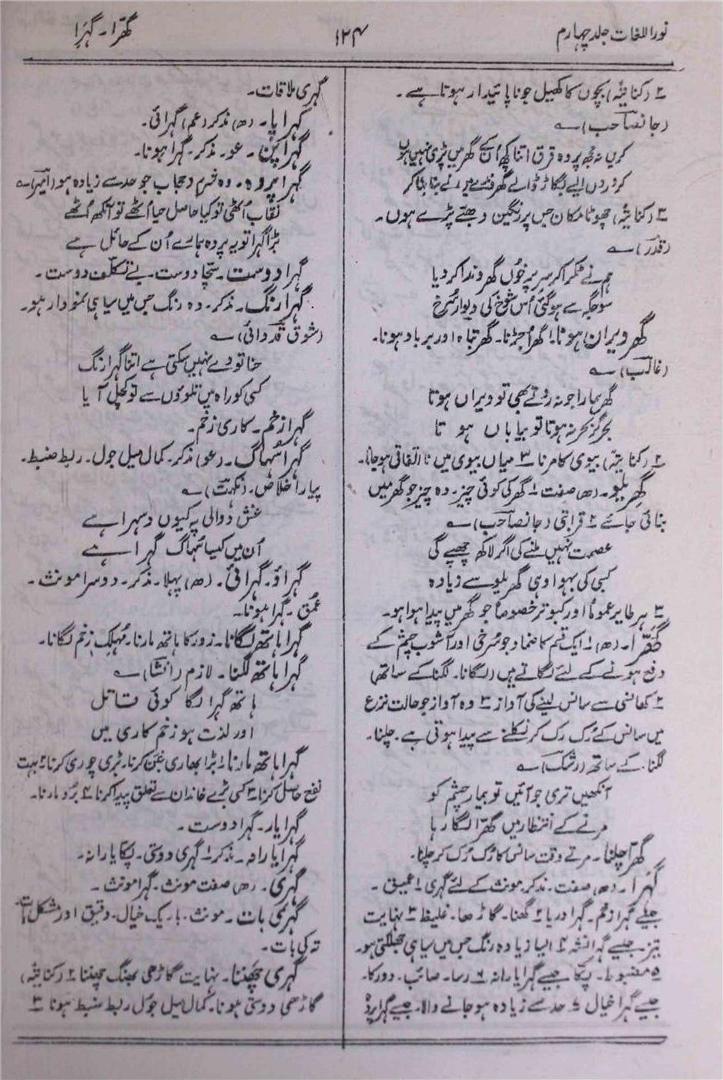 نور اللغات جلد چہارم
۱۲۴
گھرّا۔ گہرا
۲ (کنایتہً) بچوں کا کھیل جو ناپائیدار ہوتا ہے۔
(جانصاحب) ؎
کرزدں ایسے بگاڑ ڈالے گھر بنا بنا کر
۳ (کنایتہً) چھوٹا مکان جس پر رنگین دھبّے پڑے ہوں۔
(قدر) ؎
ہم نے ٹکرا کر سر پر خوں گھروندا کر دیا
سو جگہ سے ہو گئی اُس شوخ کی دیوار سُرخ
گھر ویران ہونا۔ گھر اجڑنا۔ گھر تباہ اور برباد ہونا۔
(غالب) ؎
گھر ہمارا جو نہ روتے بھی تو ویراں ہوتا
بحر گر بحر نہ ہوتا تو بیاباں ہوتا
۲ (کنایتہً) بیوی کا مرنا ۳ میاں بیوی میں نا اتفاقی ہوجانا۔
گھریلو۔ (ھ) صفت ۱ گھر کی کوئی چیز۔ وہ چیز جو گھر میں
بنائی جائے ۲ قرابتی (جانصاحب) ؎
عصمت نہیں ملنے کی اگر لاکھ چھپے گی
کسبی کی بہو اوہی گھریلو سے زیادہ
۳ ہر طایر عموماً اور کبوتر خصوصاً جو گھر میں پیدا ہوا ہو۔
گھرّا۔ (ھ) ۱ ایک قسم کا ضماد جو سُرخی اور آشوب چشم کے
دفع ہونے کے لئے لگاتے ہیں (لگانا۔ لگنا کے ساتھ)
۲ کھانسی سے سانس لینے کی آواز ۳ وہ آواز جو حالت نزع
میں سانس کے رُک رُک کر نکلنے سے پیدا ہوتی ہے۔ چلنا۔
لگنا۔ کے ساتھ (رشک) ؎
آنکھیں تری جو آئیں تو بیمار چشم کو
مرنے کے انتظار میں گھرّا لگا رہا
گھرّا چلنا۔ مرتے وقت سانس کا رُک رُک کر چلنا۔
گہرا۔ (ھ) صفت۔ مذکر۔ مونث کے لئے گہری ۱ عمیق۔
جیسے گہرا زخم۔ گہرا دریا ۲ گھنا۔ گاڑھا۔ غلیظ ۳ نہایت
تیز۔ جیسے گہرا نشہ ۴ ایسا زیادہ رنگ جس میں سیاہی جھلکتی ہو۔
۵ مضبوط۔ پکا جیسے گہرا یارانہ ۶ رسا۔ صائب۔ دور کا۔
جیسے گہرا خیال ۷ حد سے زیادہ ہو جانے والا۔ جیسے گہرا پردہ
گہری ملاقات۔
گہراپا۔ (ھ) مذکر (عم) گہرائی۔
گہراپن۔ عو۔ مذکر۔ گہرا ہونا۔
گہرا پردہ۔ وہ شرم و حجاب جو حد سے زیادہ ہو (امیر) ؎
نقاب اُٹھی تو کیا حاصل حیا اُٹھے تو آنکھ اُٹھے
بڑا گہرا تو یہ پردہ ہمارے اُن کے حائل ہے
گہرا دوست۔ سچا دوست۔ بے تکلف دوست۔
گہرا رنگ۔ مذکر۔ وہ رنگ جس میں سیاہی نمودار ہو۔
(شوق قدوائی) ؎
حنا تو دے نہیں سکتی ہے اتنا گہرا رنگ
کسی کو راہ میں تلووں سے تو کچل آیا
گہرا زخم۔ کاری زخم۔
گہرا سُہاگ۔ (عو) مذکر۔ کمال میل جول۔ ربط ضبط۔
پیار اخلاص۔ (نکہت) ؎
عنش دوالی پہ کیوں دسہرا ہے
اُن میں کیسا سُہاگ گہرا ہے
گہراؤ۔ گہرائی۔ (ھ) پہلا۔ مذکر۔ دوسرا مونث۔
عُمق۔ گہرا ہونا۔
گہرا ہاتھ لگانا۔ زور کا ہاتھ مارنا۔ مُہلک زخم لگانا۔
گہرا ہاتھ لگنا۔ لازم (انشا) ؎
ہاتھ گہرا لگا کوئی قاتل
اور لذت ہو زخم کاری میں
گہرا ہاتھ مارنا ۱ بڑا بھاری غبن کرنا۔ بڑی چوری کرنا ۲ بہت
نفع حاصل کرنا ۳ کسی بڑے خاندان سے تعلق پیدا کرنا ۴ بُرد مارنا۔
گہرا یار۔ گہرا دوست۔
گہرا یارانہ۔ مذکر۔ گہری دوستی۔ پکا یارانہ۔
گہری۔ (ھ) صفت مونث۔ گہرا مونث۔
گہری بات۔ مونث۔ باریک خیال۔ دقیق اور مشکل بات۔
تہ کی بات۔
گہری چھننا۔ نہایت گاڑھی بھنگ چھننا ۲ (کنایتہً)
گاڑھی دوستی ہونا۔ کمال میل جول ربط ضبط ہونا ۳